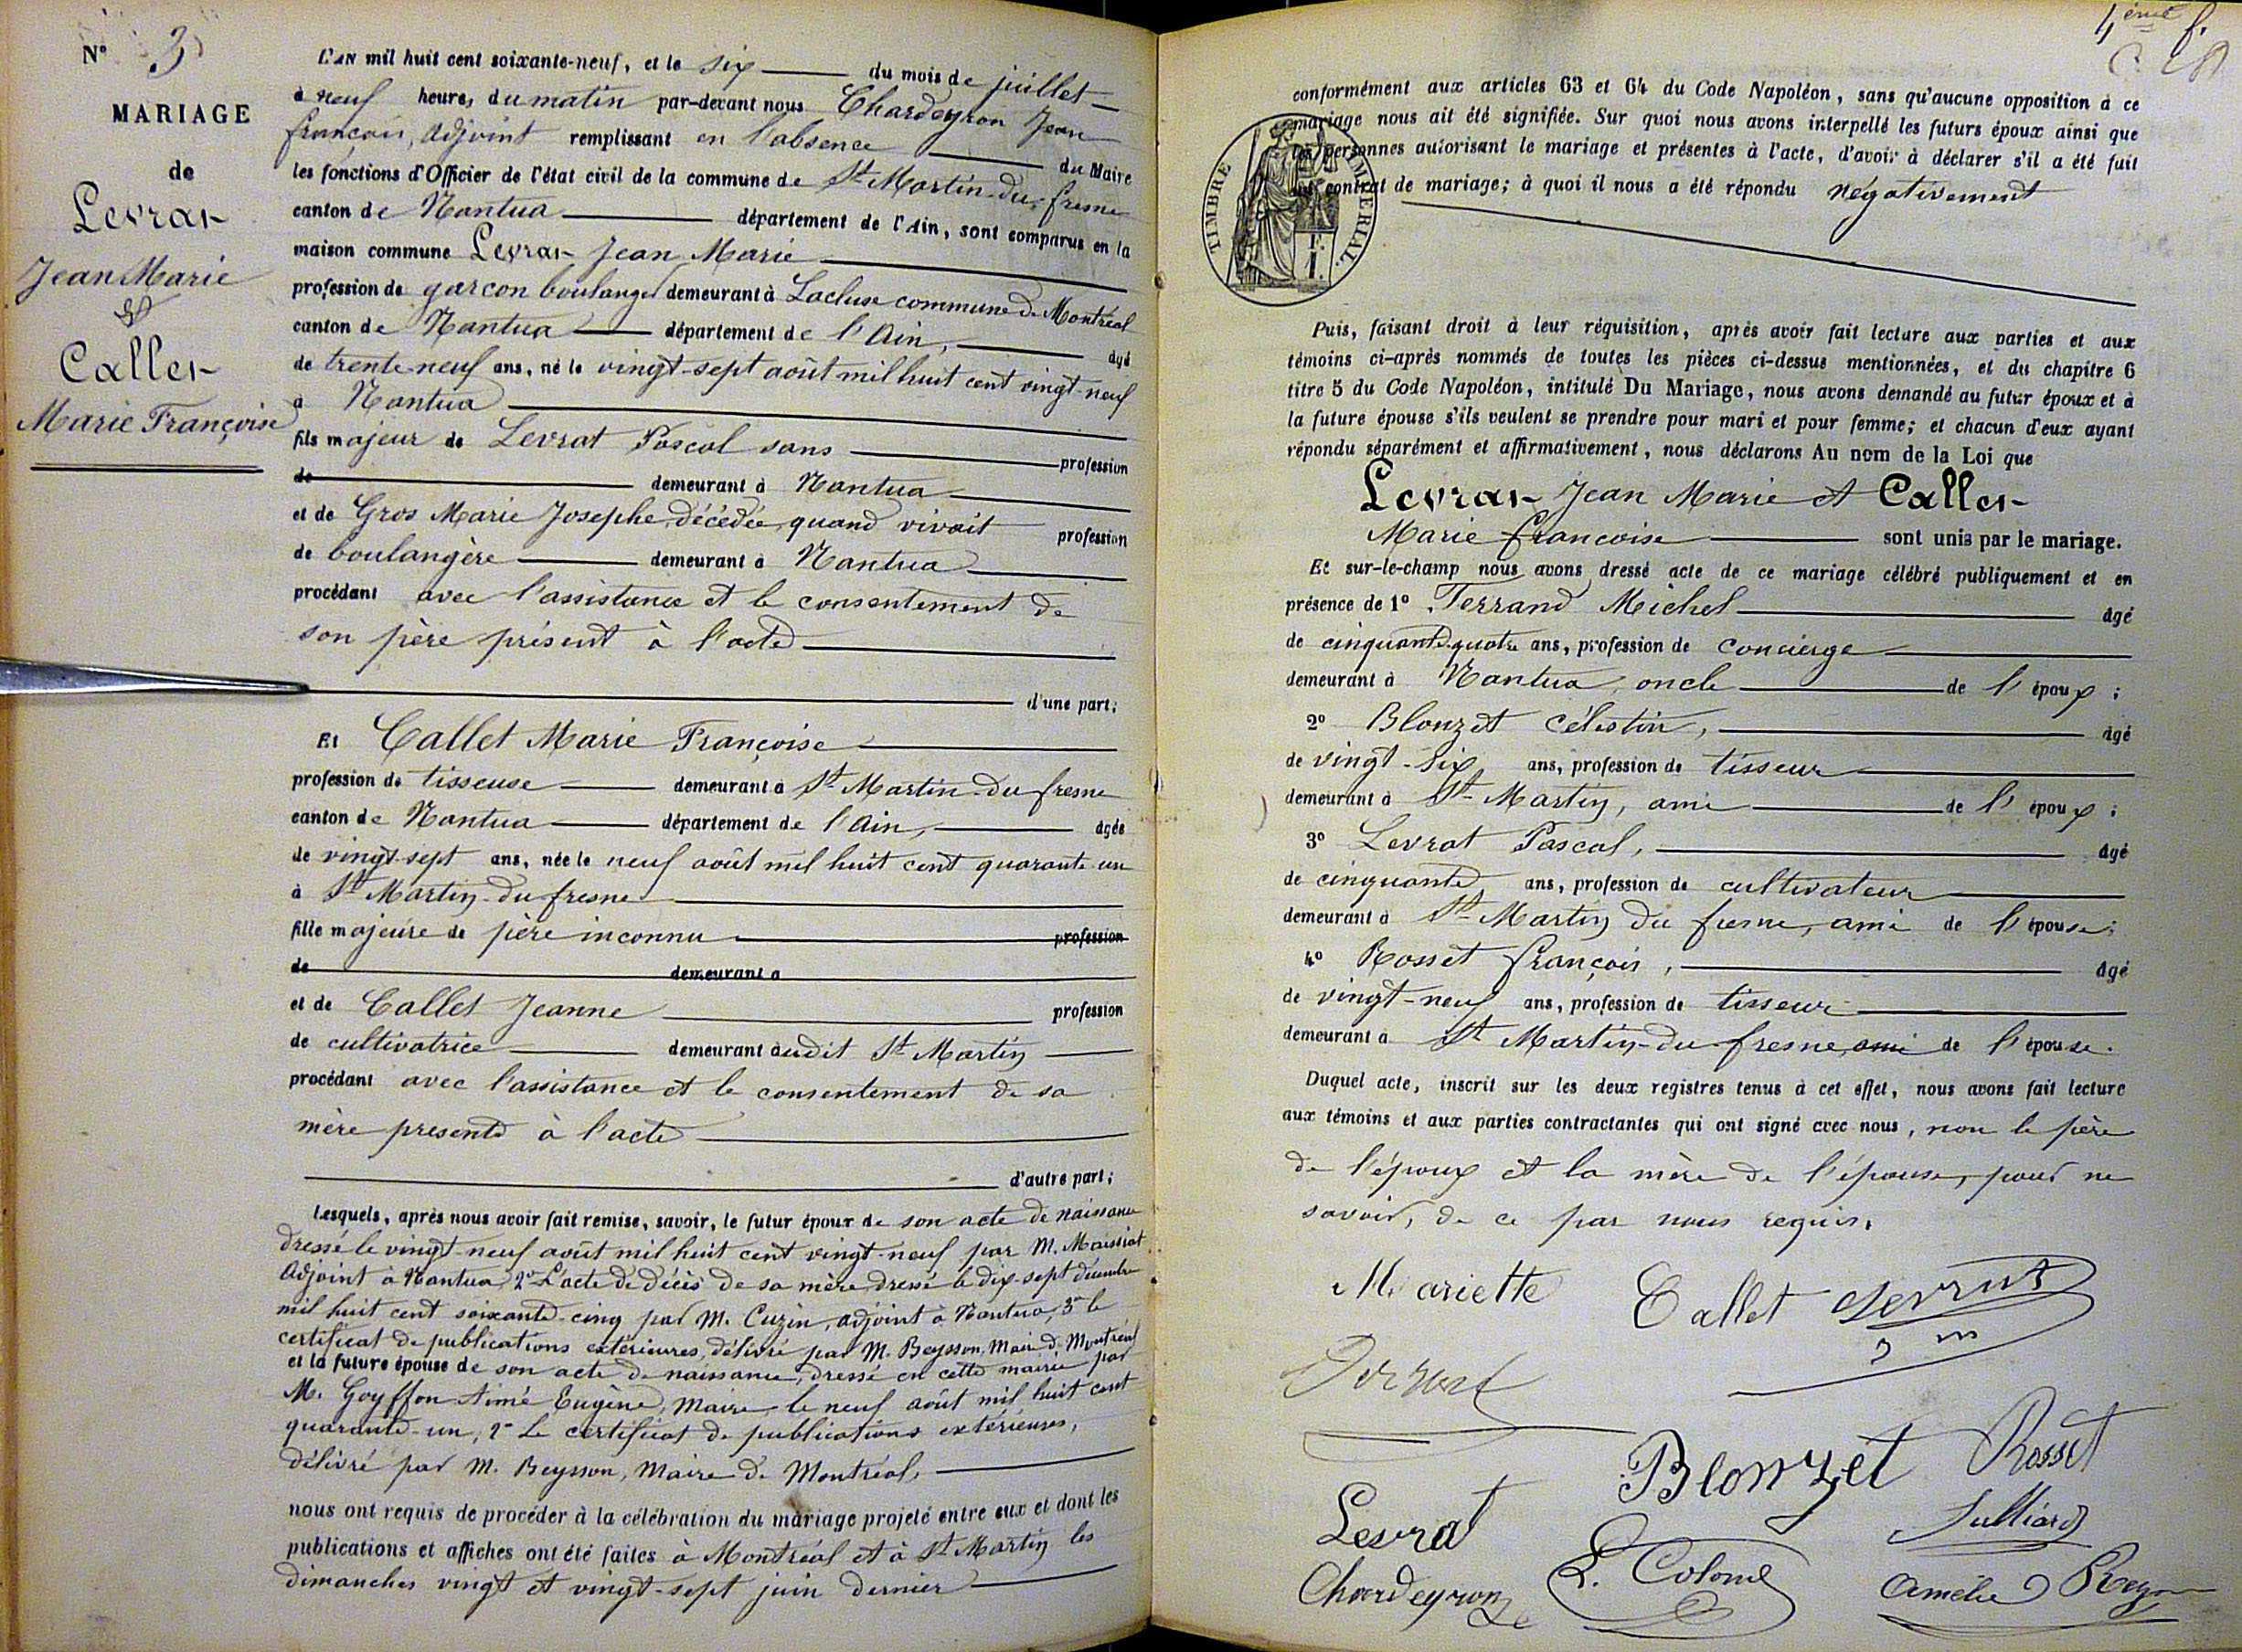 N° 3
MARIAGE
de
Levrat
Jean Marie
&
Callet
Marie Françoise
L'AN mil huit cent soixante-neuf, et le six du mois de juillet
à neuf heures du matin par-devant nous Chardeyron Jean
françois, adjoint remplissant en l'absence du Maire
les fonctions d'Officier de l'état civil de la commune de St Martin-du-fresne
canton de Nantua département de l'Ain, sont comparus en la
maison commune Levrat Jean Marie
profession de garçon boulanger demeurant à Lacluse commune de Montréal
canton de Nantua département de l'Ain, âgé
de trente-neuf ans, né le vingt-sept août mil huit cent vingt-neuf
à Nantua
fils majeur de Levrat Pascal sans profession
de demeurant à Nantua
et de Gros Marie Josephe, décédée, quand vivait profession
de boulangère demeurant à Nantua
procédant avec l'assistance et le consentement de
son père présent à l'acte
d'une part;
Et Callet Marie Françoise
profession de tisseuse demeurant à St Martin-du-fresne
canton de Nantua département de l'Ain, âgée
de vingt-sept ans, née le neuf août mil huit cent quarante-un
à St Martin-du-fresne
fille majeure de père inconnu profession
de demeurant à
et de Callet Jeanne profession
de cultivatrice demeurant àudit St Martin
procédant avec l'assistance et le consentement de sa
mère présente à l'acte
d'autre part;
Lesquels, après nous avoir fait remise, savoir, le futur époux de son acte de naissance
dressé le vingt-neuf août mil huit cent vingt-neuf par M. Maissiat
adjoint à Nantua, 2° L'acte de décès de sa mère, dressé le dix-sept décembre
mil huit cent soixante-cinq par M. Cuzin, adjoint à Nantua, 3° le
certificat de publications extérieures, délivré par M. Beysson, Maire de Montréal
et la future épouse de son acte de naissance, dressé en cette mairie par
M. Goyffon Aimé Eugène, Maire, le neuf août mil huit cent
quarante-un, 2° Le certificat de publications extérieures,
délivré par M. Beysson, Maire de Montréal,
nous ont requis de procéder à la célébration du mariage projeté entre eux et dont les
publications et affiches ont été faites à Montréal et à St Martin les
dimanches vingt et vingt-sept juin dernier
4ème f.
conformément aux articles 63 et 64 du Code Napoléon, sans qu'aucune opposition à ce
mariage nous ait été signifiée. Sur quoi nous avons interpellé les futurs époux ainsi que
les personnes autorisant le mariage et présentes à l'acte, d'avoir à déclarer s'il a été fait
contrat de mariage; à quoi il nous a été répondu négativement
TIMBRE IMPÉRIAL
Puis, faisant droit à leur réquisition, après avoir fait lecture aux parties et aux
témoins ci-après nommés de toutes les pièces ci-dessus mentionnées, et du chapitre 6
titre 5 du Code Napoléon, intitulé Du Mariage, nous avons demandé au futur époux et à
la future épouse s'ils veulent se prendre pour mari et pour femme; et chacun d'eux ayant
répondu séparément et affirmativement, nous déclarons Au nom de la Loi que
Levrat Jean Marie et Callet
Marie françoise sont unis par le mariage.
Et sur-le-champ nous avons dressé acte de ce mariage célébré publiquement et en
présence de 1° Ferrand Michel âgé
de cinquante-quatre ans, profession de concierge
demeurant à Nantua, oncle de l'époux;
2° Blonzet Célestin, âgé
de vingt-six ans, profession de tisseur
demeurant à St Martin, ami de l'époux;
3° Levrat Pascal, âgé
de cinquante ans, profession de cultivateur
demeurant à St Martin du fresne, ami de l'épouse;
4° Rosset françois, âgé
de vingt-neuf ans, profession de tisseur
demeurant à St Martin-du-fresne, ami de l'épouse.
Duquel acte, inscrit sur les deux registres tenus à cet effet, nous avons fait lecture
aux témoins et aux parties contractantes qui ont signé avec nous, non le père
de l'époux et la mère de l'épouse, pour ne
savoir, de ce par nous requis.
Mariette Callet Levrat
Blonzet Rosset
Levrat Julliard
Chardeyron L. Colomb Amélie